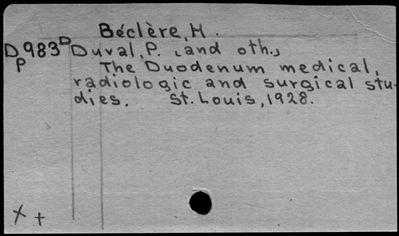 Béclère, H.
D983D Duval, P. [and oth.]
P The Duodenum medical,
radiologic and surgical stu-
dies. St. Louis, 1928.
x +